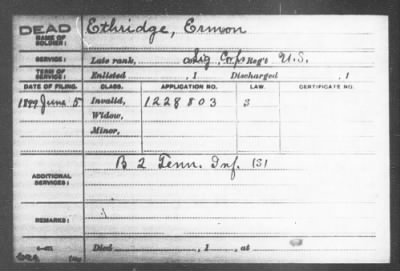 DEAD
NAME OF SOLDIER: Ethridge, Ermon
SERVICE: Late rank, Co. Sig. Corps Reg't U.S.
TERM OF SERVICE: Enlisted , 1 Discharged , 1
DATE OF FILING. CLASS. APPLICATION NO. LAW. CERTIFICATE NO.
1899 June 5 Invalid, 1228803 3
Widow,
Minor,
ADDITIONAL SERVICES: B 2 Tenn. Inf. (S)
REMARKS:
Died , 1 , at